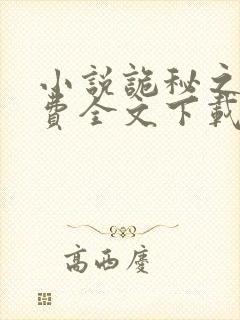 小説詭秘之
費全文下載
高西慶